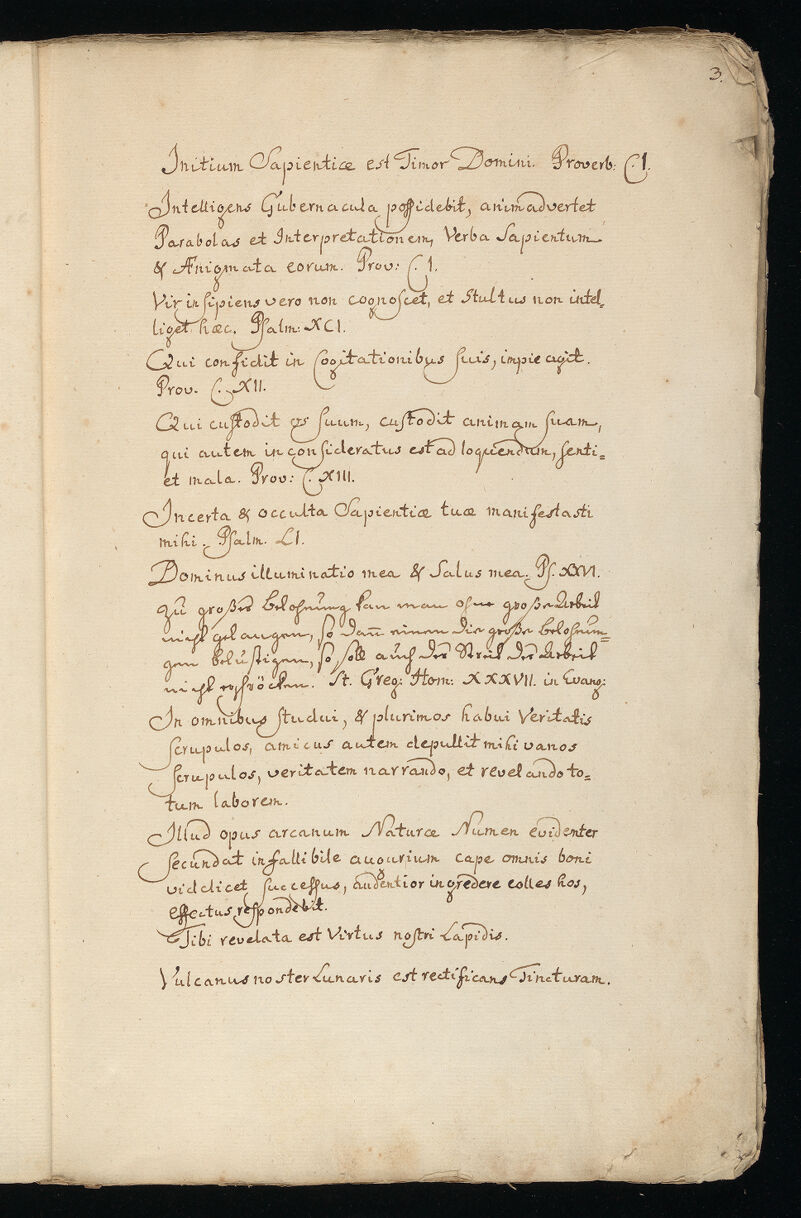 3.
Initium Sapientiæ est Timor Domini. Proverb: C.I.
Intelligens Gubernacula possidebit, animadvertet
Parabolas et Interpretationem, Verba Sapientum
& Ænigmata eorum. Prov: C.I.
Vir insipiens vero non cognoscet, et stultus non intel-
liget hæc. Psalm: XCI.
Qui confidit in Cogitationibus suis, impie agit.
Prov. C. XII.
Qui custodit os suum, custodit animam suam,
qui autem inconsideratus est ad loquendum, senti=
et mala. Prov: C. XIII.
Incerta & occulta Sapientiæ tuæ manifestasti
mihi. Psalm. LI.
Dominus illuminatio mea & Salus mea. Ps. XXVI.
Zu großer belohnung kan man ohne große Arbeit
nicht gelangen, so dann einen die große belohnun=
gen belustigen, so soll auch der Streit der Arbeit
nicht erschröcken. St. Greg: Hom: XXXVII. in Evang:
In omnibus studui, & plurimos habui Veritatis
scrupulos, amicus autem depullit mihi vanos
scrupulos, veritatem narrando, et revelando to=
tum laborem.
Illud opus arcanum Naturæ Numen evidenter
secundat infallibile augurium cape omnis boni
videlicet successus, audentior ingredere colles hos,
effectus respondebit.
Tibi revelata est Virtus nostri Lapidis.
Vulcanus noster Lunaris est rectificans Tincturam.